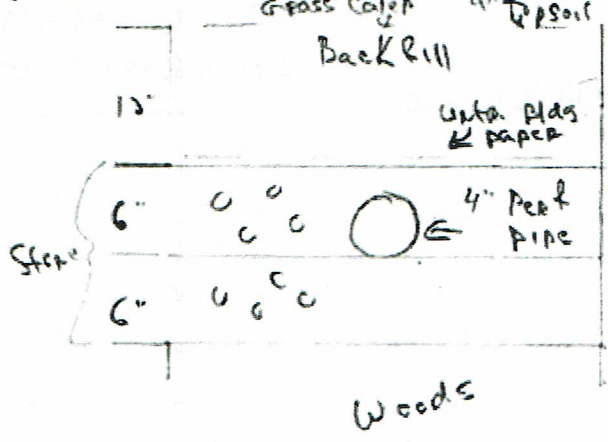 Grass Cover 4" Topsoil
Backfill
12"
Untr. Bldg
paper
6"
4" Perf
pipe
Stone
6"
Woods